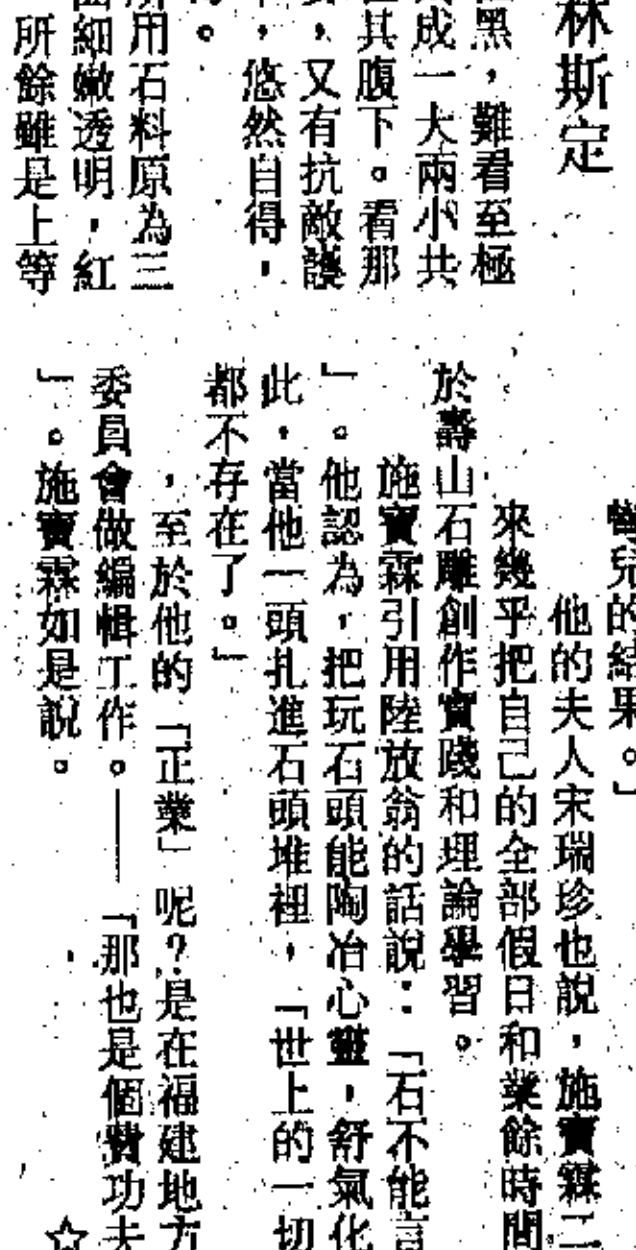 林斯定
黑，難看至極
成一大兩小共
其腹下。看那
，又有抗敵護
，悠然自得，
。
所用石料原為三
細嫩透明，紅
所餘雖是上等
兒的結果。」
他的夫人宋瑞珍也說，施寶霖二
來幾乎把自己的全部假日和業餘時間
於壽山石雕創作實踐和理論學習。
施寶霖引用陸放翁的話說：「石不能言
」。他認為，把玩石頭能陶冶心靈，舒氣化
此，當他一頭扎進石頭堆裡，「世上的一切
都不存在了。」
，至於他的「正業」呢？是在福建地方
委員會做編輯工作。——「那也是個費功夫
」。施寶霖如是說。
☆